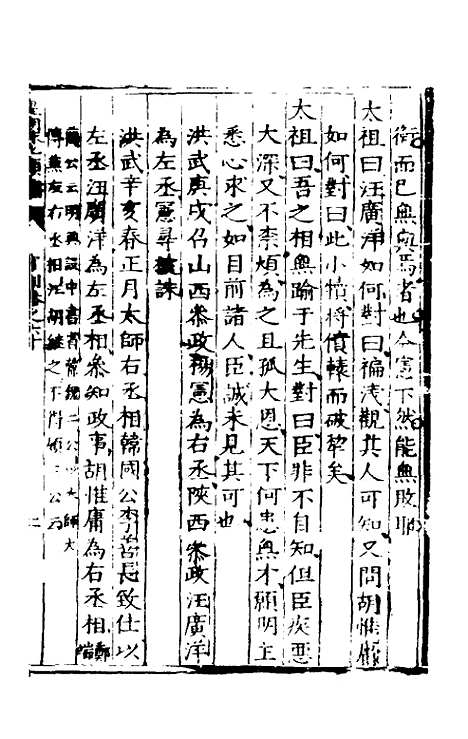 衡而已無與焉者也今憲不然能無敗耶
太祖曰汪廣洋如何對曰褊淺觀其人可知又問胡惟庸
如何對曰此小犢將僨轅而破犂矣
太祖曰吾之相無踰于先生對曰臣非不自知但臣疾惡
大深又不柰煩為之且孤大恩天下何患無才願明主
悉心求之如目前諸人臣誠未見其可也
洪武庚戌召山西叅政楊憲為右丞陝西叅政汪廣洋
為左丞憲尋被誅
洪武辛亥春正月太師右丞相韓國公李善長致仕以
左丞汪廣洋為左丞相叅知政事胡惟庸為右丞相鄭端
簡公云明興設中書省
傅兼左右丞相汪胡繼之